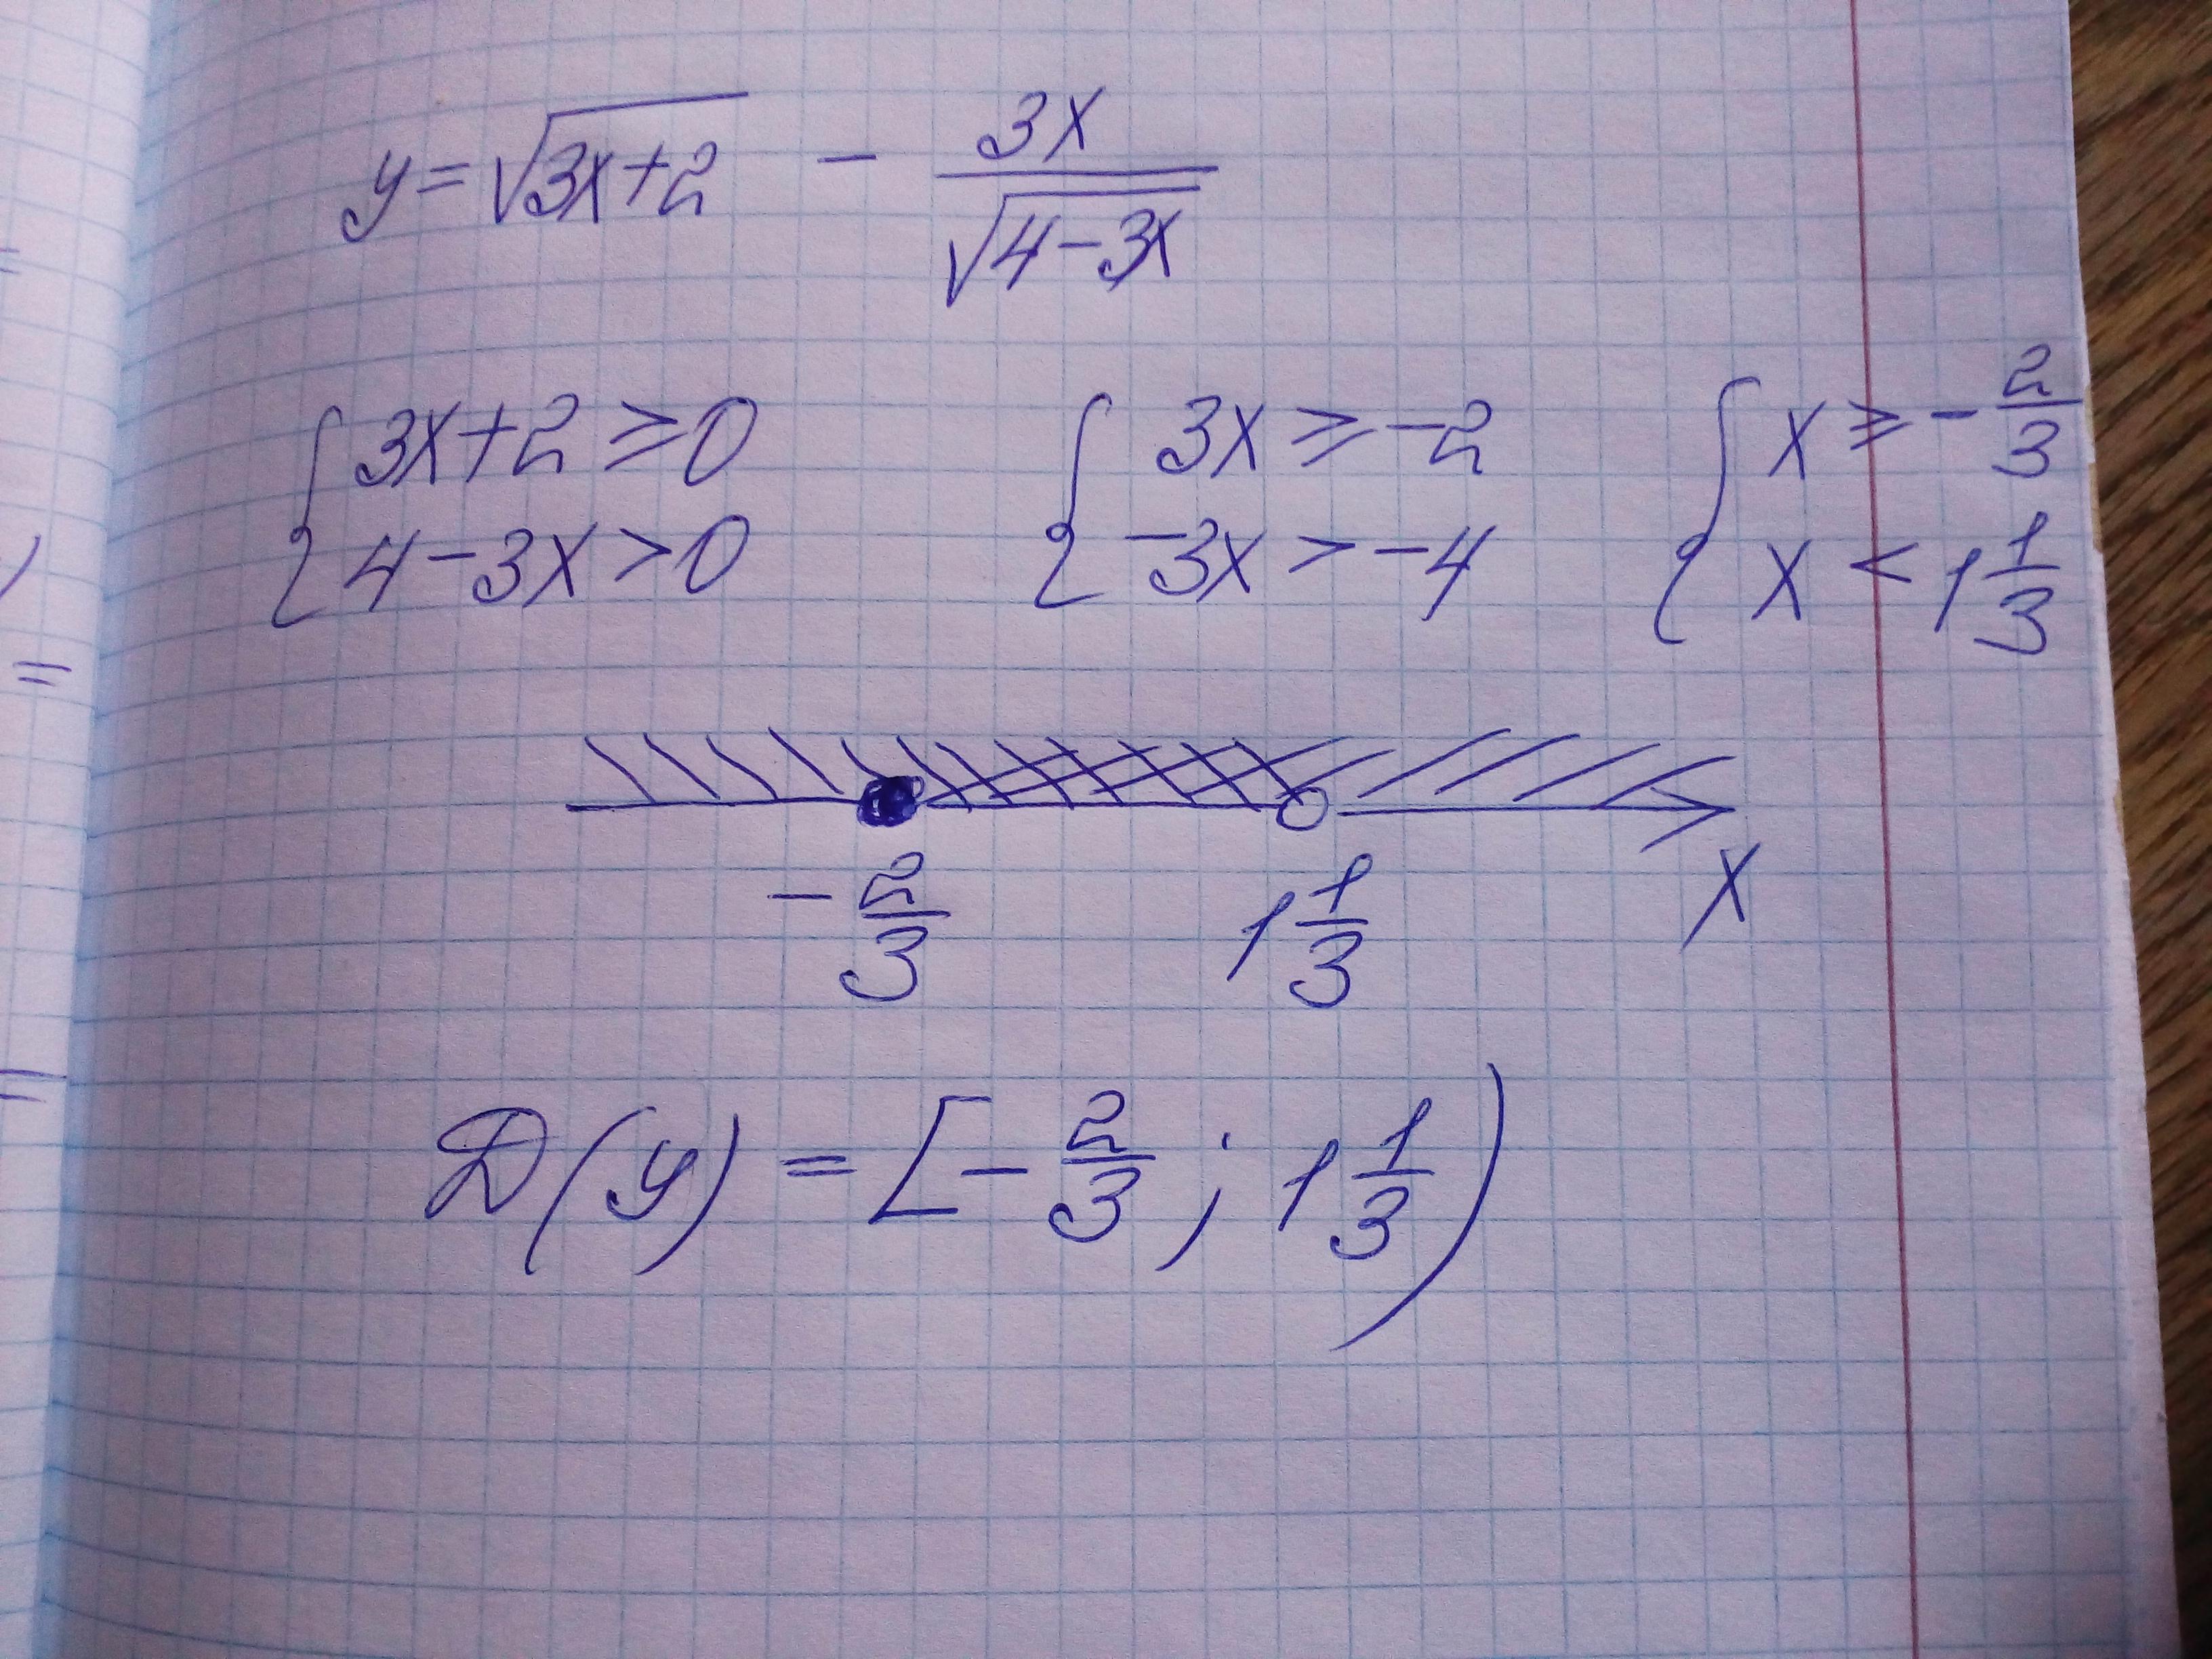 y = √(3x+2) − 3x/√(4−3x)
{ 3x+2 ≥ 0 { 3x ≥ −2 { x ≥ −2/3
{ 4−3x > 0 { −3x > −4 { x < 1 1/3
−2/3 1 1/3 x
D(y) = [−2/3 ; 1 1/3)